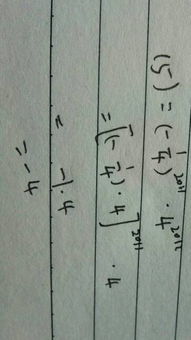 (5) = (-1/4)^2011 · 4^2012
= [(-1/4) · 4]^2011 · 4
= -1 · 4
= -4